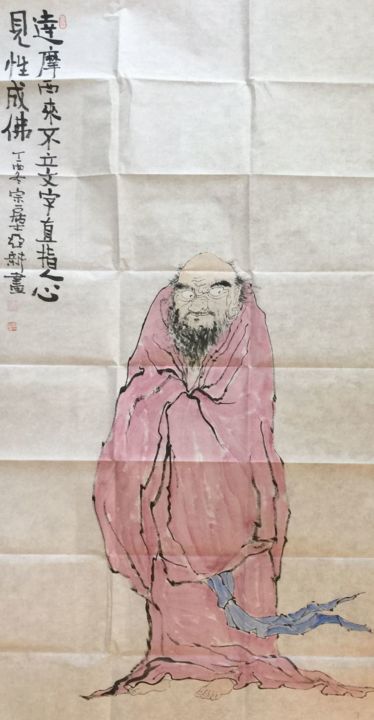 達摩西來不立文字直指人心
見性成佛
丁酉冬宗居士亞軒畫